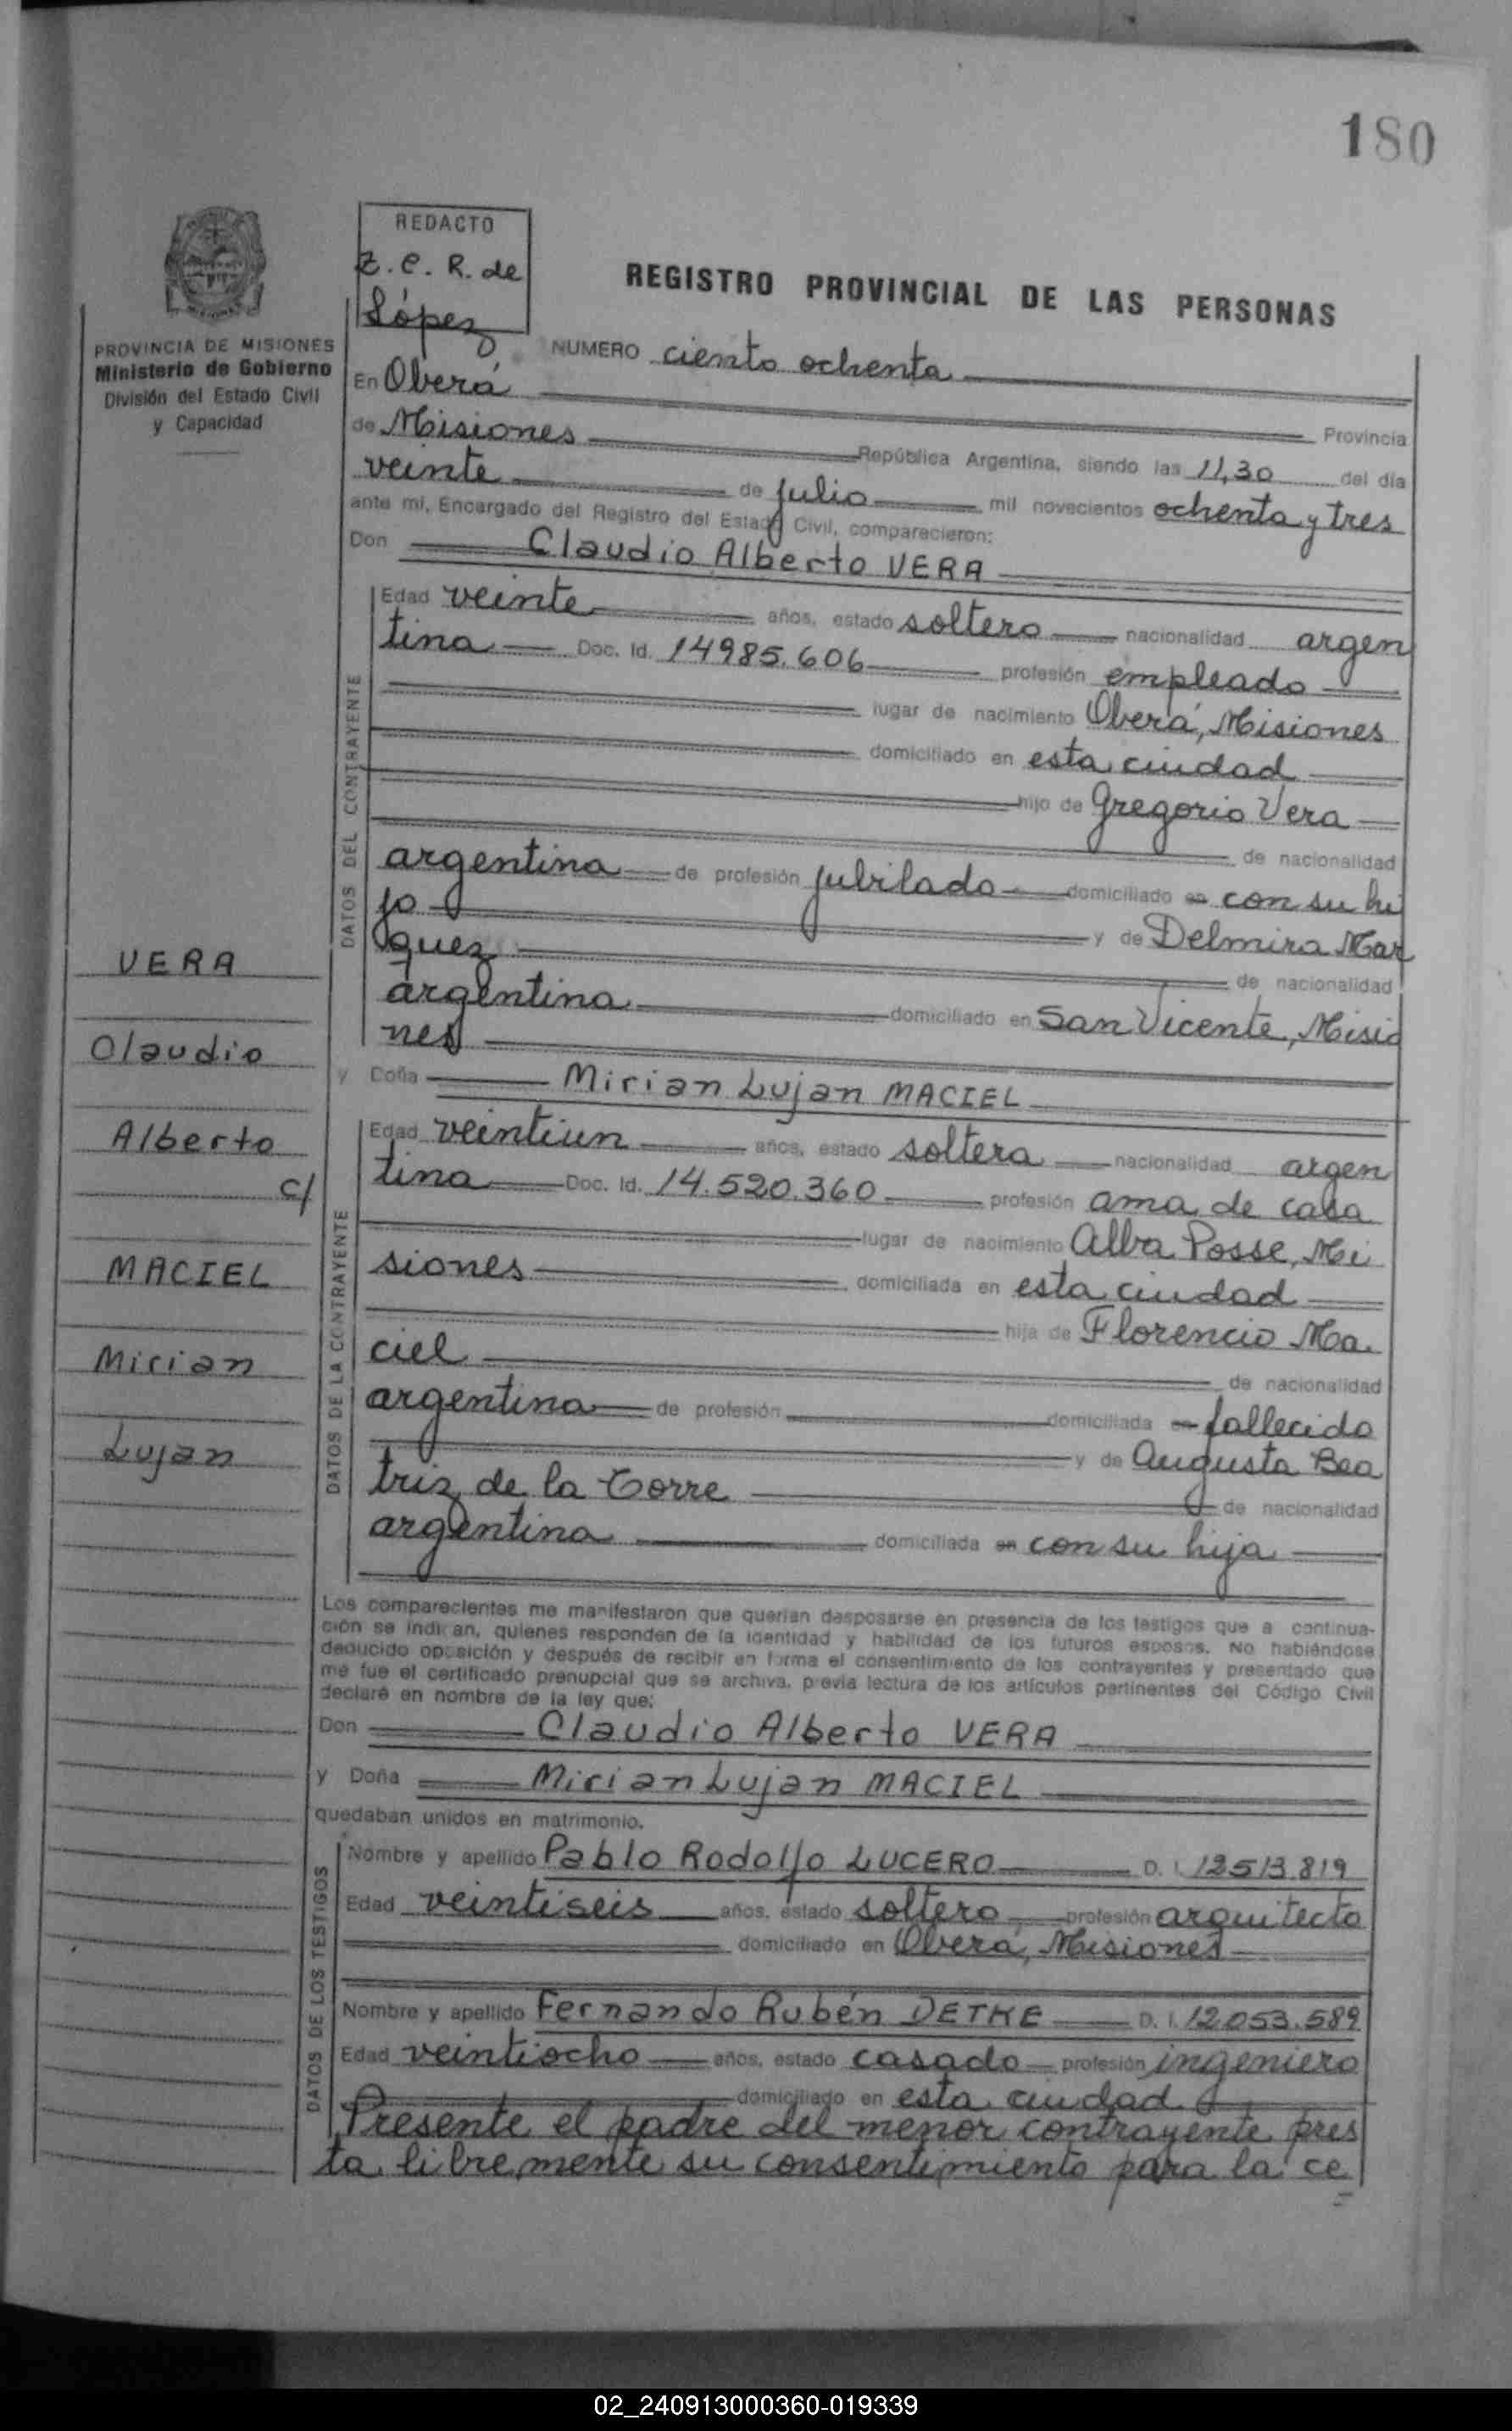 180
REDACTO
Z.C.R. de
López
REGISTRO PROVINCIAL DE LAS PERSONAS
PROVINCIA DE MISIONES
Ministerio de Gobierno
División del Estado Civil
y Capacidad
NUMERO ciento ochenta
En Oberá
Provincia
de Misiones República Argentina, siendo las 11,30 del día
veinte de julio mil novecientos ochenta y tres
ante mí, Encargado del Registro del Estado Civil, comparecieron:
Don Claudio Alberto VERA
DATOS DEL CONTRAYENTE
Edad veinte años, estado soltero nacionalidad argen
tina Doc. Id. 14985.606 profesión empleado
lugar de nacimiento Oberá, Misiones
domiciliado en esta ciudad
hijo de Gregorio Vera
de nacionalidad
argentina de profesión jubilado domiciliado en con su hi
jo y de Delmira Mar
quez de nacionalidad
argentina domiciliado en San Vicente, Misio
nes
y Doña Mirian Lujan MACIEL
DATOS DE LA CONTRAYENTE
Edad veintiun años, estado soltera nacionalidad argen
tina Doc. Id. 14.520.360 profesión ama de casa
lugar de nacimiento Alba Posse, Mi
siones domiciliada en esta ciudad
hija de Florencio Ma.
ciel de nacionalidad
argentina de profesión domiciliada en fallecido
y de Augusta Bea
triz de la Torre de nacionalidad
argentina domiciliada en con su hija
VERA
Claudio
Alberto
c/
MACIEL
Mirian
Lujan
Los comparecientes me manifestaron que querían desposarse en presencia de los testigos que a continua-
ción se indican, quienes responden de la identidad y habilidad de los futuros esposos. No habiéndose
deducido oposición y después de recibir en forma el consentimiento de los contrayentes y presentado que
me fue el certificado prenupcial que se archiva, previa lectura de los artículos pertinentes del Código Civil
declaré en nombre de la ley que:
Don Claudio Alberto VERA
y Doña Mirian Lujan MACIEL
quedaban unidos en matrimonio.
DATOS DE LOS TESTIGOS
Nombre y apellido Pablo Rodolfo LUCERO D. I. 12513.819
Edad veintiseis años, estado soltero profesión arquitecto
domiciliado en Oberá, Misiones
Nombre y apellido Fernando Rubén DETKE D. I. 12.053.589
Edad veintiocho años, estado casado profesión ingeniero
domiciliado en esta ciudad
Presente el padre del menor contrayente pres
ta libremente su consentimiento para la ce
02_240913000360-019339